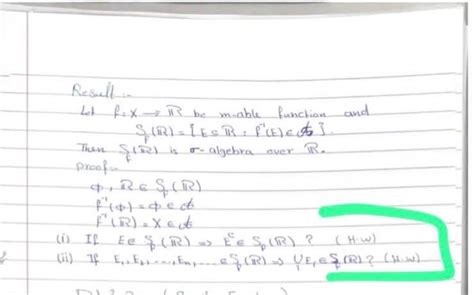 Result :-
Let f: X → ℝ be m-able function and
S_f(ℝ) = [E ⊆ ℝ : f⁻¹(E) ∈ 𝒜].
Then S_f(ℝ) is σ-algebra over ℝ.
proof:-
φ, ℝ ∈ S_f(ℝ)
f⁻¹(φ) = φ ∈ 𝒜
f⁻¹(ℝ) = X ∈ 𝒜
(i) If E ∈ S_f(ℝ) ⇒ Eᶜ ∈ S_f(ℝ) ? (H.W)
(ii) If E₁, E₂, ..., Eₙ, ... ∈ S_f(ℝ) ⇒ ⋃Eᵢ ∈ S_f(ℝ) ? (H.W)